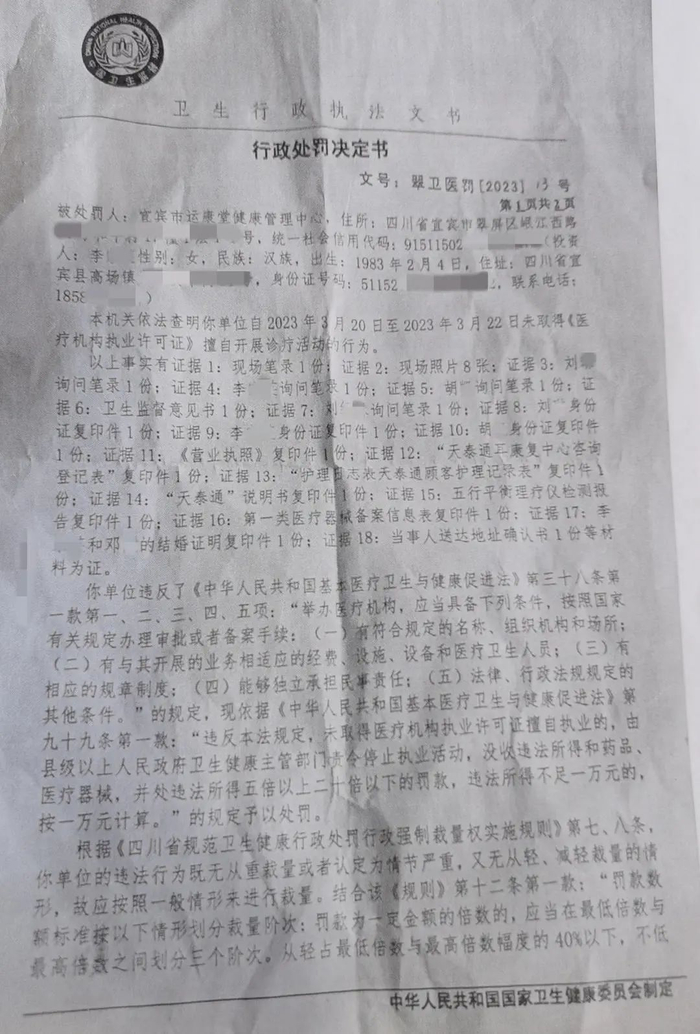 CHINA NATIONAL HEALTH INSPECTION
中国卫生监督
卫生行政执法文书
行政处罚决定书
文号：翠卫医罚[2023] 13 号
第1页共2页
被处罚人：宜宾市运康堂健康管理中心，住所：四川省宜宾市翠屏区岷江西路
号，统一社会信用代码：91511502 （投资
人：李 性别：女，民族：汉族，出生：1983年2月4日，住址：四川省宜
宾县高场镇 ，身份证号码：51152 ，联系电话：
1858 ）
本机关依法查明你单位自2023年3月20日至2023年3月22日未取得《医
疗机构执业许可证》擅自开展诊疗活动的行为。
以上事实有证据1：现场笔录1份；证据2：现场照片8张；证据3：刘
询问笔录1份；证据4：李 询问笔录1份；证据5：胡 询问笔录1份；证
据6：卫生监督意见书1份；证据7：刘 询问笔录1份；证据8：刘 身份
证复印件1份；证据9：李 身份证复印件1份；证据10：胡 身份证复印件
1份；证据11：《营业执照》复印件1份；证据12：“天泰通耳康复中心咨询
登记表”复印件1份；证据13：“护理日志表天泰通顾客护理记录表”复印件1
份；证据14：“天泰通”说明书复印件1份；证据15：五行平衡理疗仪检测报
告复印件1份；证据16：第一类医疗器械备案信息表复印件1份；证据17：李
和邓 的结婚证明复印件1份；证据18：当事人送达地址确认书1份等材
料为证。
你单位违反了《中华人民共和国基本医疗卫生与健康促进法》第三十八条第
一款第一、二、三、四、五项：“举办医疗机构，应当具备下列条件，按照国家
有关规定办理审批或者备案手续：（一）有符合规定的名称、组织机构和场所；
（二）有与其开展的业务相适应的经费、设施、设备和医疗卫生人员；（三）有
相应的规章制度；（四）能够独立承担民事责任；（五）法律、行政法规规定的
其他条件。”的规定，现依据《中华人民共和国基本医疗卫生与健康促进法》第
九十九条第一款：“违反本法规定，未取得医疗机构执业许可证擅自执业的，由
县级以上人民政府卫生健康主管部门责令停止执业活动，没收违法所得和药品、
医疗器械，并处违法所得五倍以上二十倍以下的罚款，违法所得不足一万元的，
按一万元计算。”的规定予以处罚。
根据《四川省规范卫生健康行政处罚行政强制裁量权实施规则》第七、八条，
你单位的违法行为既无从重裁量或者认定为情节严重，又无从轻、减轻裁量的情
形，故应按照一般情形来进行裁量。结合该《规则》第十二条第一款：“罚款数
额标准按以下情形划分裁量阶次：罚款为一定金额的倍数的，应当在最低倍数与
最高倍数之间划分三个阶次。从轻占最低倍数与最高倍数幅度的40%以下，不低
中华人民共和国国家卫生健康委员会制定